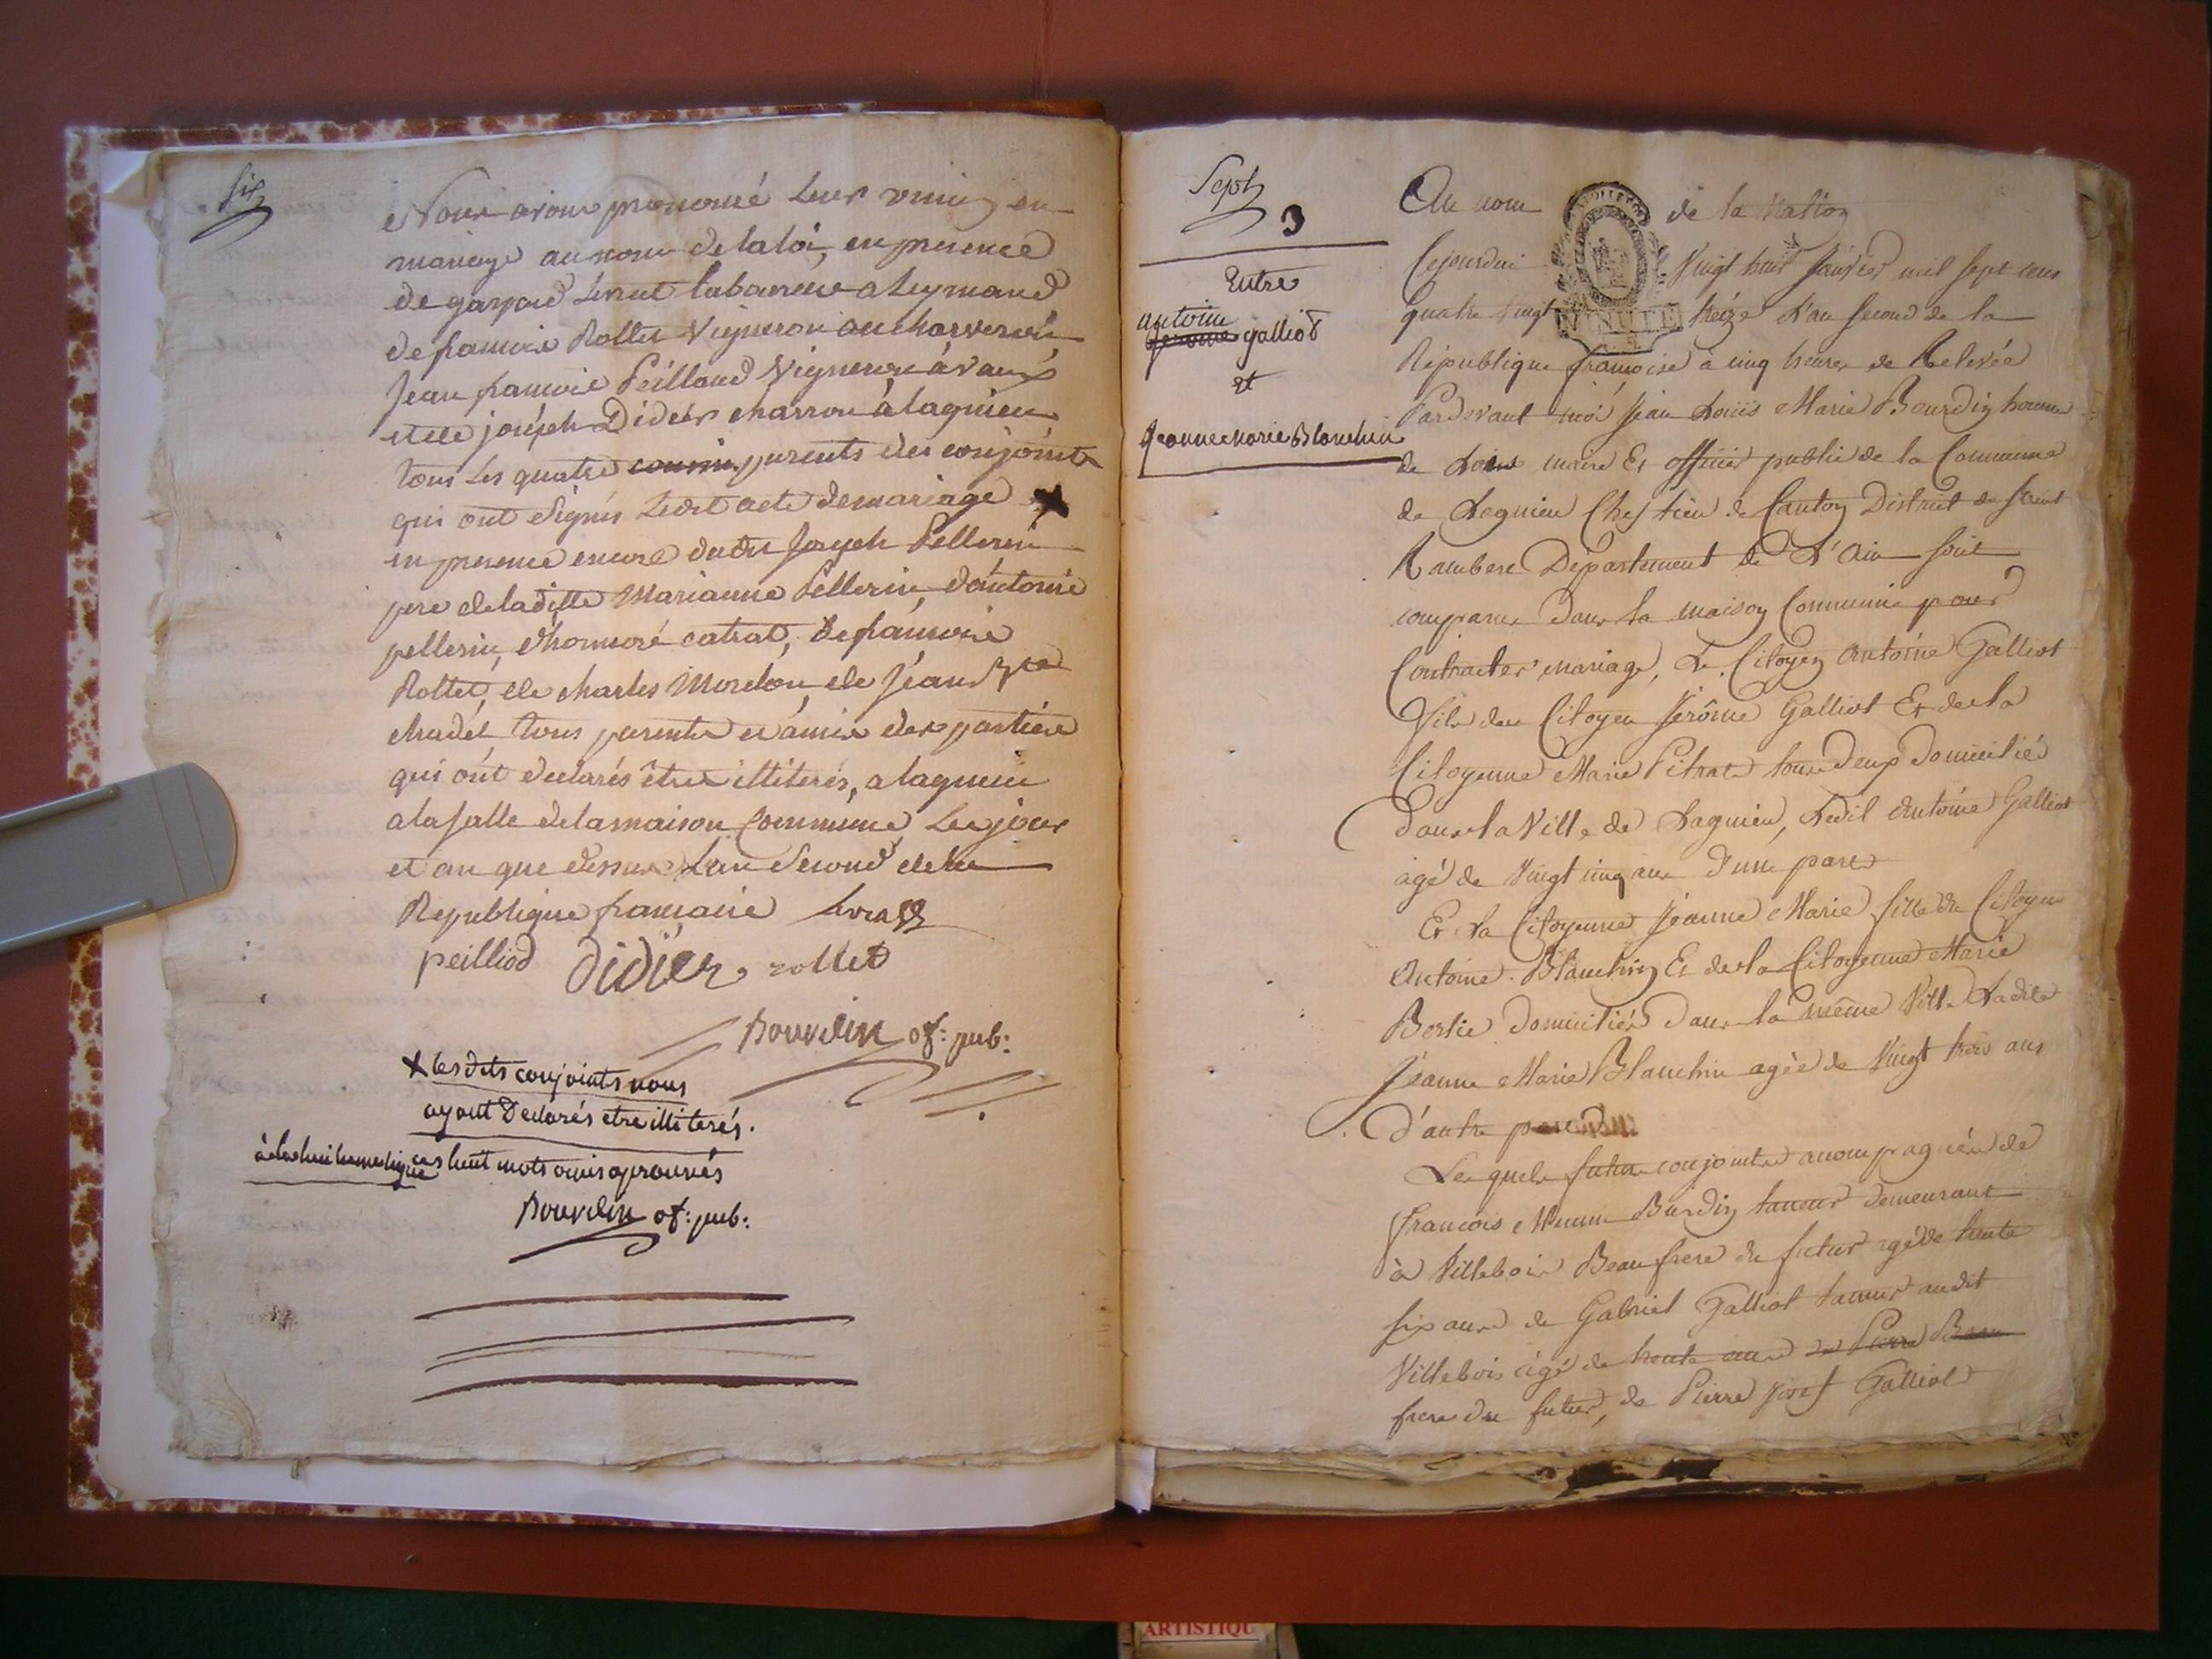 six
Nous avons prononcé leur union en
mariage au nom de la loi, en presence
de gaspard
de francois Rollet Vigneron au charveron
Jean francois Peilloud Vigneron à vaux
et de joséph Didier charron à lagnieu
tous les quatre cousin parents des conjoints
qui ont signés ledit acte de mariage
en presence encore dudit Joseph Pellerin
pere de ladiste Marianne Pellerin, d'antoine
pellerin, d'honnoré catrat, de francoise
Rollet, de charles Morelon, de Jean Bte
chadel tous parents et amis des parties
qui ont declarés être illiterés, a lagnieu
a la salle de la maison Commune les jour
et an que dessus L'an second de la
Republique francaise
peilliod didier rollet
Bourdin of: pub:
les dits conjoints nous
ayant Declarés etre illiterés.
ces huit mots
Bourdin of: pub:
Sept
3
Entre
antoine
jerome galliod
et
Jeanne marie Blanchin
Au nom de la Nation
Cejourdui Vingt huit Janvier mil sept cens
quatre Vingt treize L'an second de la
République françoise à cinq heures de Relevée
Pardevant moi Jean Louis Marie Bourdin homme
de Loix maire Et officier public de la Commune
de Lagnieu Chef lieu de Canton District de Saint
Rambert Département de L'Ain sont
comparus dans la maison Commune pour
Contracter mariage, Le Citoyen Antoine Galliot
fils du Citoyen Jerôme Galliot Et de la
Citoyenne Marie Pitrat tous deux Domiciliés
dans la Ville de Lagnieu, Ledit Antoine Galliot
agé de Vingt cinq ans d'une part
Et La Citoyenne Jeanne Marie fille du Citoyen
Antoine Blanchin Et de la Citoyenne Marie
Domiciliés dans la même Ville Ladite
Jeanne Marie Blanchin agée de Vingt trois ans
D'autre part
Lesquels futurs conjoints accompagnés de
francois Burdin taneur demeurant
à Villebois Beaufrere du futur agé de trente
six ans de Gabriel Galliot taneur audit
Villebois agé de trente ans de Pierre Beau
frere du futur, de Pierre Josef Galliot